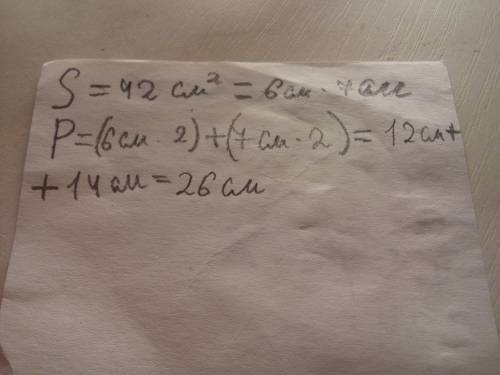 S = 42 см² = 6см · 7см
P=(6см · 2)+(7см · 2)= 12см+
+ 14см = 26 см